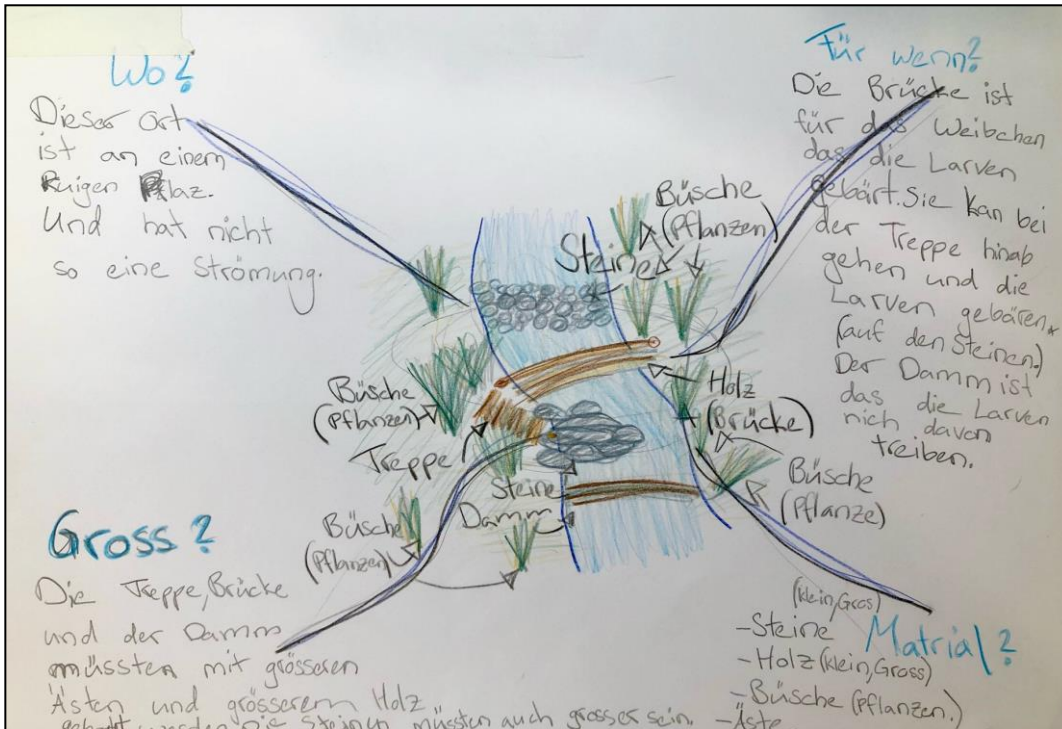 Wo?
Dieser Ort
ist an einem
Ruigen Plaz.
Und hat nicht
so eine Strömung.
Für wenn?
Die Brücke ist
für das Weibchen
das die Larven
gebärt. Sie kan bei
der Treppe hinab
gehen und die
Larven gebären.
(auf den Steinen.)
Der Damm ist
das die Larven
nich davon
treiben.
Büsche
(Pflanzen)
Steine
Büsche
(Pflanzen)
Treppe
Holz
(Brücke)
Steine
Damm
Büsche
(Pflanze)
Büsche
(Pflanzen)
Gross?
Die Treppe, Brücke
und der Damm
müssten mit grösseren
Ästen und grösserem Holz
werden Die Steinen müssten auch grosser sein.
Matrial?
(klein, Gros)
-Steine
-Holz (klein, Gross)
-Büsche (Pflanzen.)
-Äste